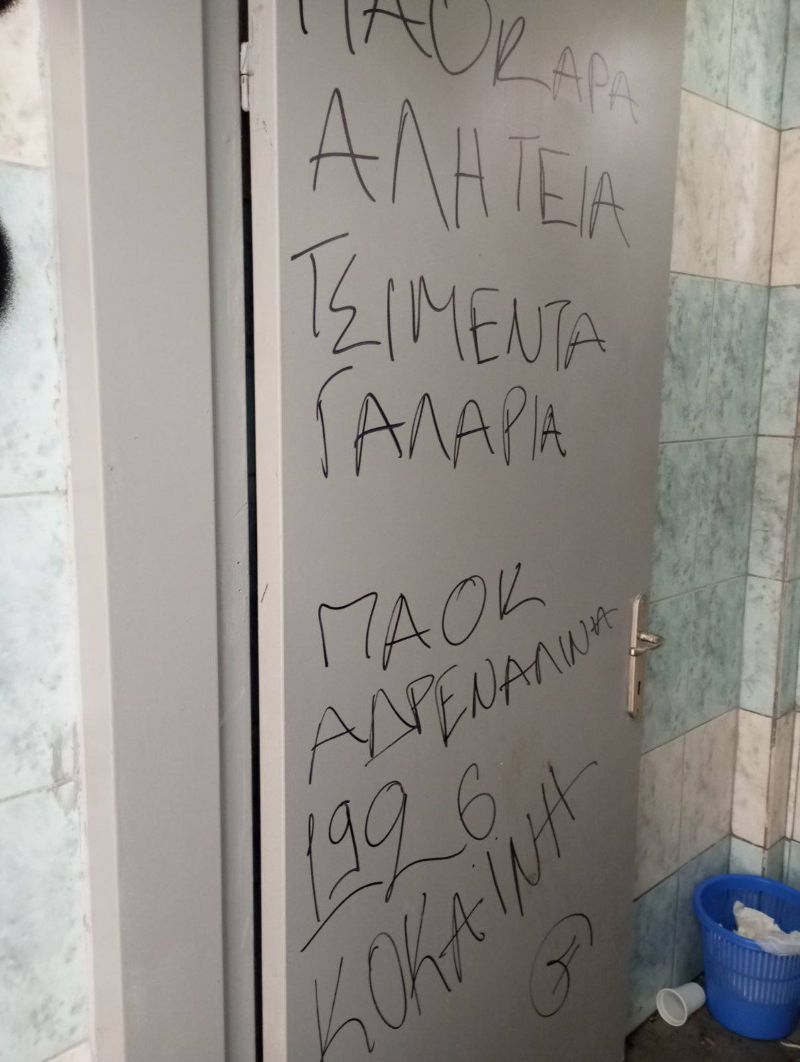 ΠΑΟΚΑΡΑ
ΑΛΗΤΕΙΑ
ΤΣΙΜΕΝΤΑ
ΓΑΛΑΡΙΑ
ΠΑΟΚ
ΑΔΡΕΝΑΛΙΝΗ
1926
ΚΟΚΑΪΝΗ